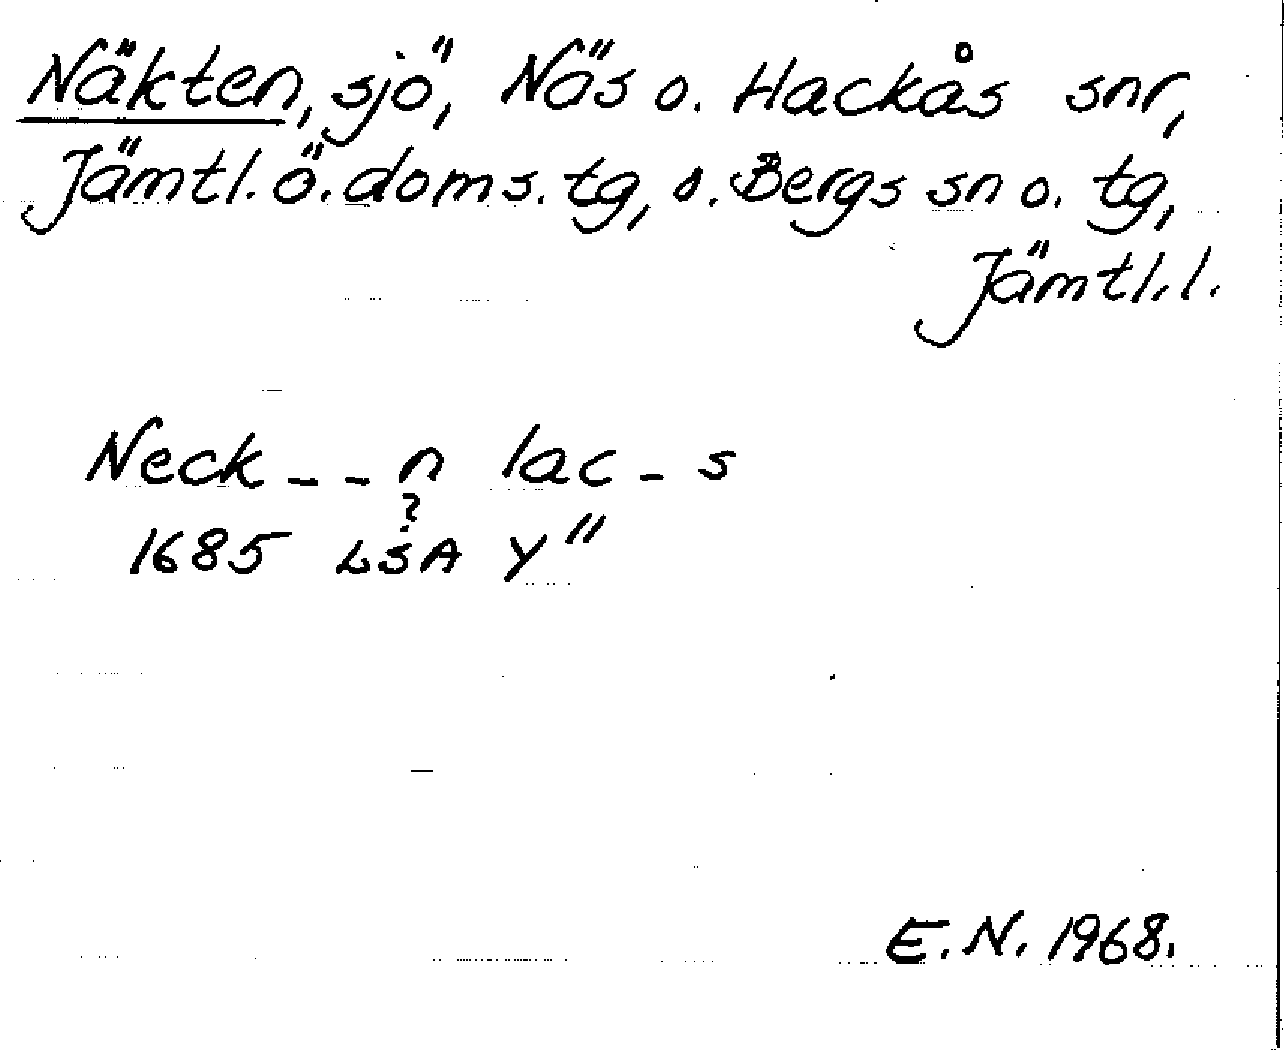 Näkten, sjö, Näs o. Hackås snr,
Jämtl. ö. doms. tg, o. Bergs sn o. tg,
Jämtl. l.
Neck _ _ n lac _ s
?
1685 LSA Y"
E. N. 1968.